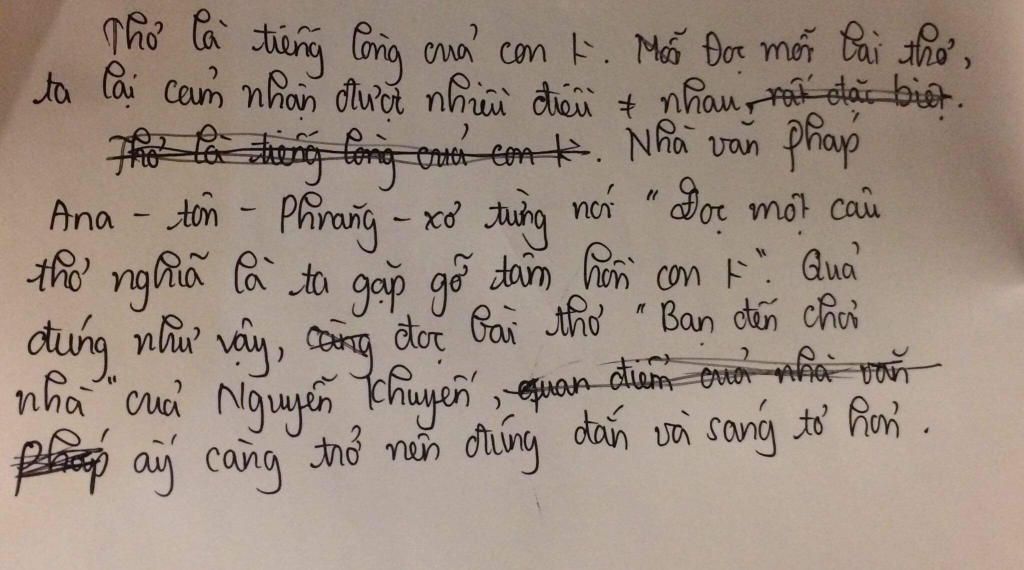 Thơ là tiếng lòng của con k. Mỗi Đọc mỗi bài thơ,
ta lại cảm nhận được nhiều điều ≠ nhau, rất đặc biệt.
Thơ là tiếng lòng của con k. Nhà văn Pháp
Ana - tôn - Phrăng - xơ từng nói "Đọc một câu
thơ nghĩa là ta gặp gỡ tâm hồn con k". Quả
đúng như vậy, càng đọc bài thơ "Bạn đến chơi
nhà" của Nguyễn Khuyến, quan điểm của nhà văn
Pháp ấy càng trở nên đúng đắn và sáng tỏ hơn.